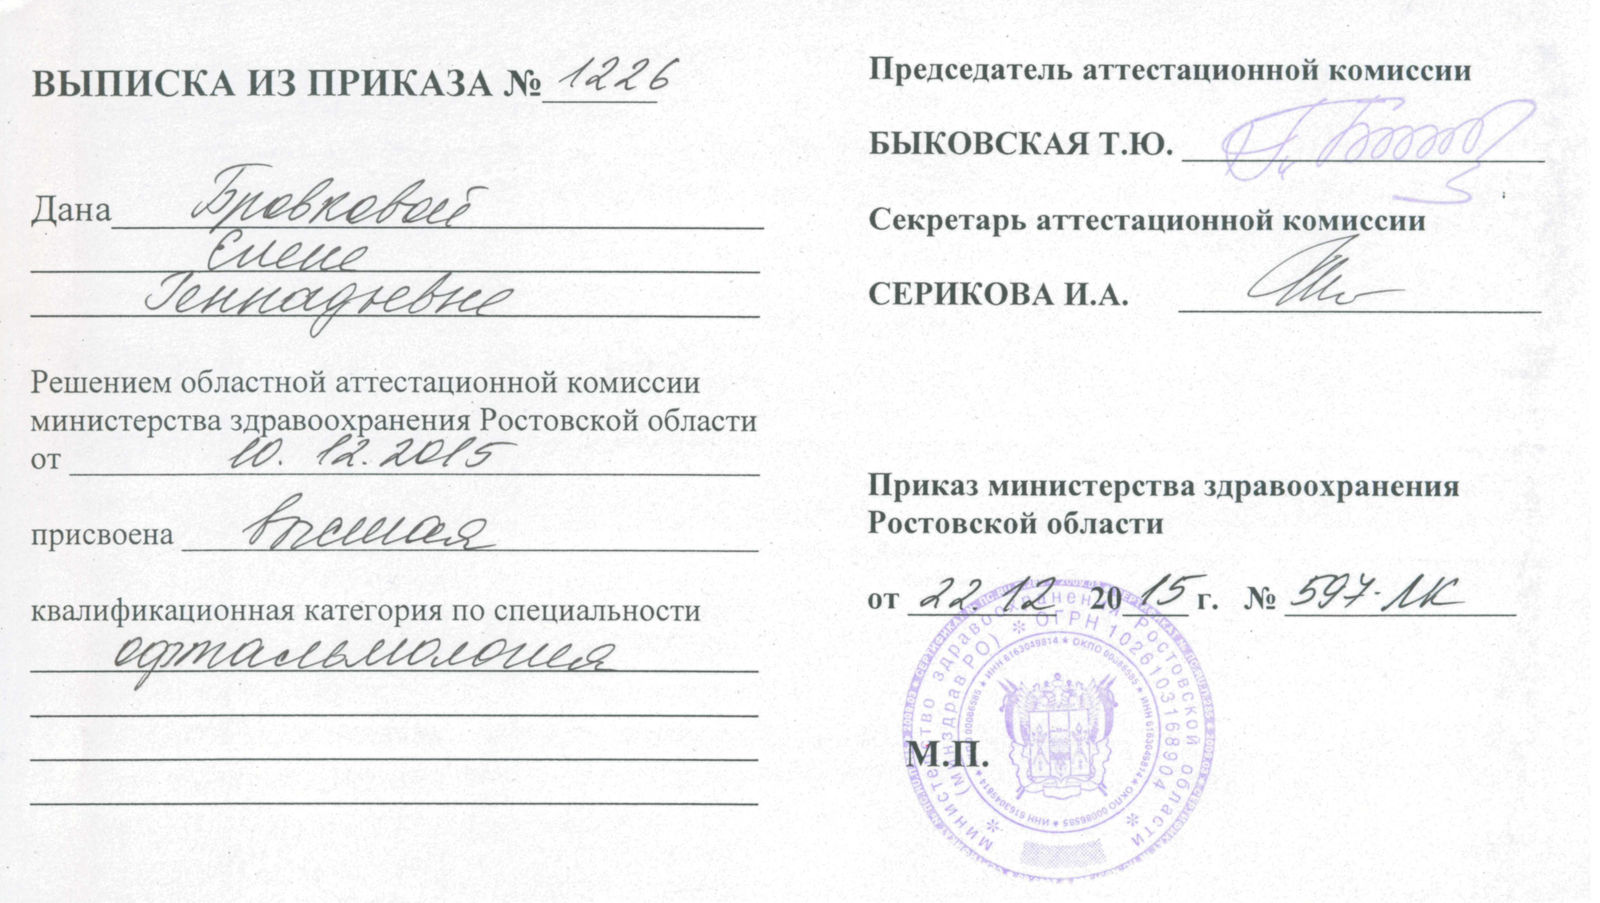 ВЫПИСКА ИЗ ПРИКАЗА № 1226
Дана Бровковой
Елене
Геннадьевне
Решением областной аттестационной комиссии
министерства здравоохранения Ростовской области
от 10. 12. 2015
присвоена высшая
квалификационная категория по специальности
офтальмология
Председатель аттестационной комиссии
БЫКОВСКАЯ Т.Ю.
Секретарь аттестационной комиссии
СЕРИКОВА И.А.
Приказ министерства здравоохранения
Ростовской области
от 22 12 2015 г. № 597-ЛК
М.П.
Министерство здравоохранения Ростовской области
(Минздрав РО) * ОГРН 1026103168904 *
ИНН 6163049814 * ОКПО 00086585